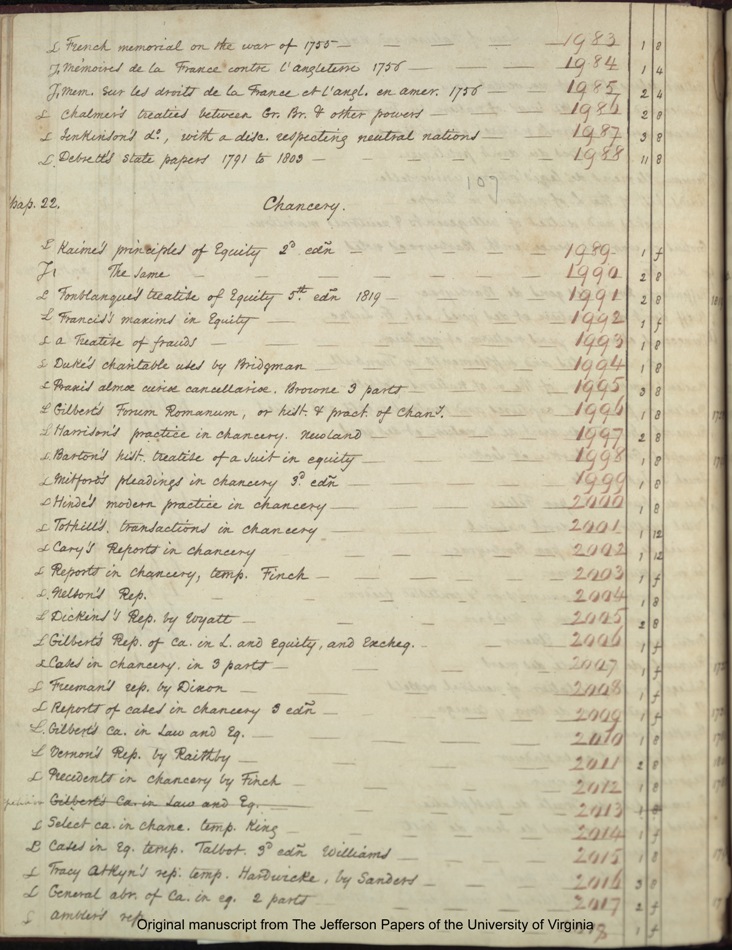 L French memorial on the war of 1755 — 1983 1 8
J. Mémoires de la France contre l'angleterre 1756 1984 1 4
J. Mem. sur les droits de la France et l'angl. en amer. 1756 — 1985 2 4
L Chalmer's treaties between Gr. Br. & other powers — 1986 2 8
L Jenkinson's do., with a disc. respecting neutral nations — 1987 3 8
L. Debrett's state papers 1791 to 1803 — 1988 11 8
107
hap. 22. Chancery.
L Kaime's principles of Equity 2d edn — 1989 1 f
J. The same — 1990 2 8
L Fonblanque's treatise of Equity 5th edn 1819 — 1991 2 8
L Francis's maxims in Equity — 1992 1 f
L a Treatise of frauds — 1993 1 8
L Duke's charitable uses by Bridgman — 1994 1 8
L Praxis almae curiae cancellariae. Browne 3 parts — 1995 3 8
L Gilbert's Forum Romanum, or hist. & pract. of Chany. 1996 1 8
L Harrison's practice in chancery. Newland — 1997 2 8
L Barton's hist. treatise of a suit in equity — 1998 1 8
L Mitford's pleadings in chancery 3d edn — 1999 1 8
L Hinde's modern practice in chancery — 2000 1 8
L Tothill's transactions in chancery — 2001 1 12
L Cary's Reports in chancery — 2002 1 12
L Reports in chancery, temp. Finch — 2003 1 f
L Nelson's Rep. — 2004 1 8
L Dickins's Rep. by Wyatt — 2005 2 8
L Gilbert's Rep. of Ca. in L. and Equity, and Excheq. — 2006 1 f
L Cases in chancery. in 3 parts — 2007 1 f
L Freeman's rep. by Dixon — 2008 1 f
L Reports of cases in chancery 3 edn — 2009 1 f
L. Gilbert's ca. in Law and Eq. — 2010 1 8
L Vernon's Rep. by Raithby — 2011 2 8
L Precedents in chancery by Finch — 2012 1 8
Gilbert's Ca. in Law and Eq. — 2013 1 8
L Select ca. in chanc. temp. King — 2014 1 f
L Cases in Eq. temp. Talbot. 3d edn Williams — 2015 1 8
L Tracy Atkyn's rep. temp. Hardwicke, by Sanders — 2016 3 8
L General abr. of Ca. in eq. 2 parts — 2017 2 f
L Ambler's rep. 1 f
Original manuscript from The Jefferson Papers of the University of Virginia